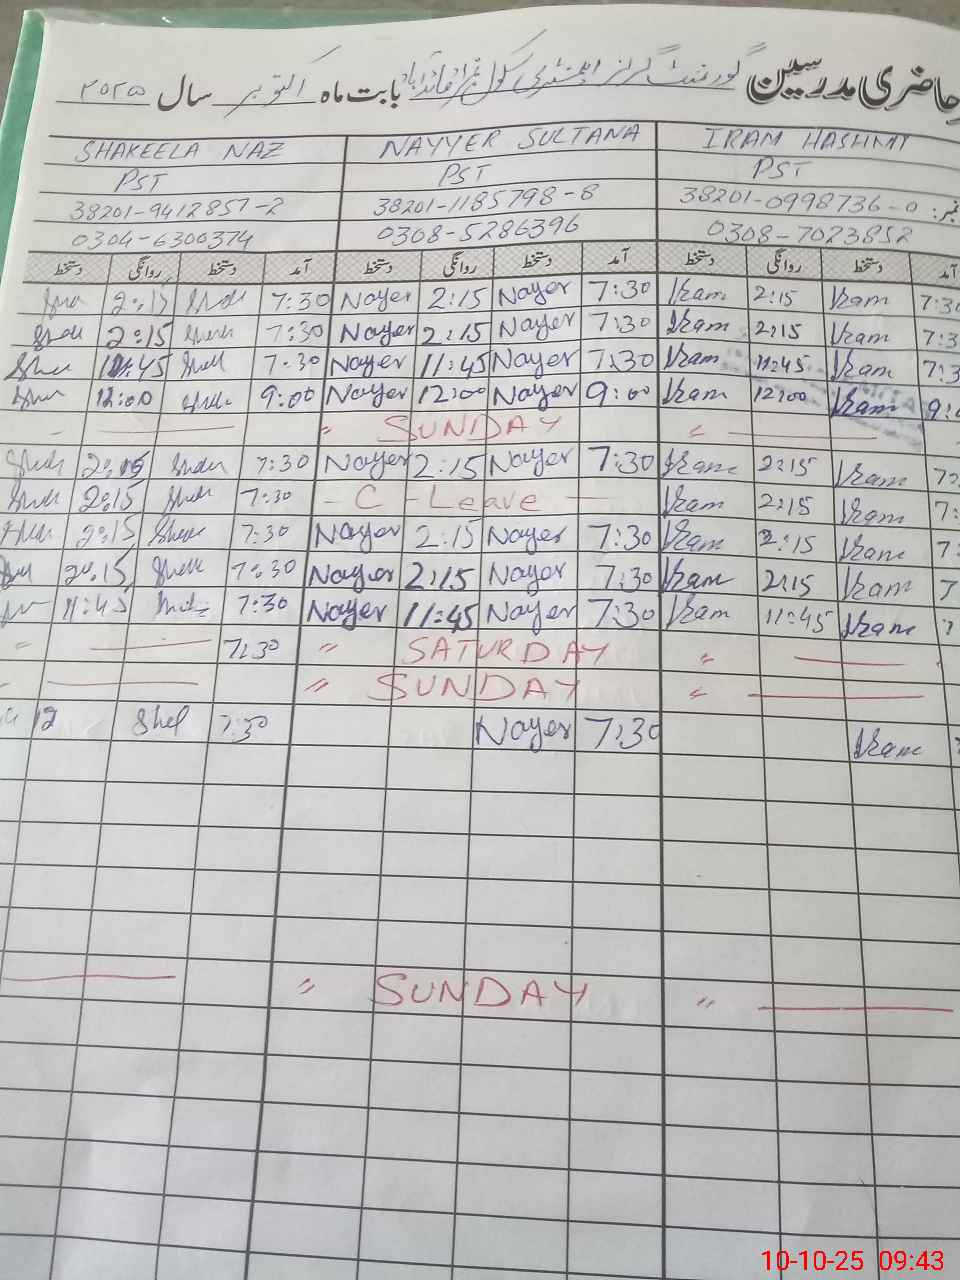 حاضری مدرسین گورنمنٹ گرلز ایلیمنٹری سکول بابت ماہ اکتوبر سال ۲۰۲۵
SHAKEELA NAZ NAYYER SULTANA IRAM HASHMI
PST PST PST
38201-9412857-2 38201-1185798-8 38201-0998736-0 نمبر:
0304-6300374 0308-5286396 0308-7023852
دستخط روانگی دستخط آمد دستخط روانگی دستخط آمد دستخط روانگی دستخط آمد
2:15 7:30 Nayer 2:15 Nayer 7:30 Iram 2:15 Iram 7:30
2:15 7:30 Nayer 2:15 Nayer 7:30 Iram 2:15 Iram 7:3
11:45 7:30 Nayer 11:45 Nayer 7:30 Iram 11:45 Iram 7:3
12:00 9:00 Nayer 12:00 Nayer 9:00 Iram 12:00 Iram 9:
" SUNDAY "
2:15 7:30 Nayer 2:15 Nayer 7:30 Iram 2:15 Iram 7:
2:15 7:30 - C - Leave - Iram 2:15 Iram 7:
2:15 7:30 Nayer 2:15 Nayer 7:30 Iram 2:15 Iram 7:
2:15 7:30 Nayer 2:15 Nayer 7:30 Iram 2:15 Iram 7
11:45 7:30 Nayer 11:45 Nayer 7:30 Iram 11:45 Iram 7
" 7:30 " SATURDAY "
" SUNDAY "
12 Shel 7:30 Nayer 7:30 Iram
" SUNDAY "
10-10-25 09:43